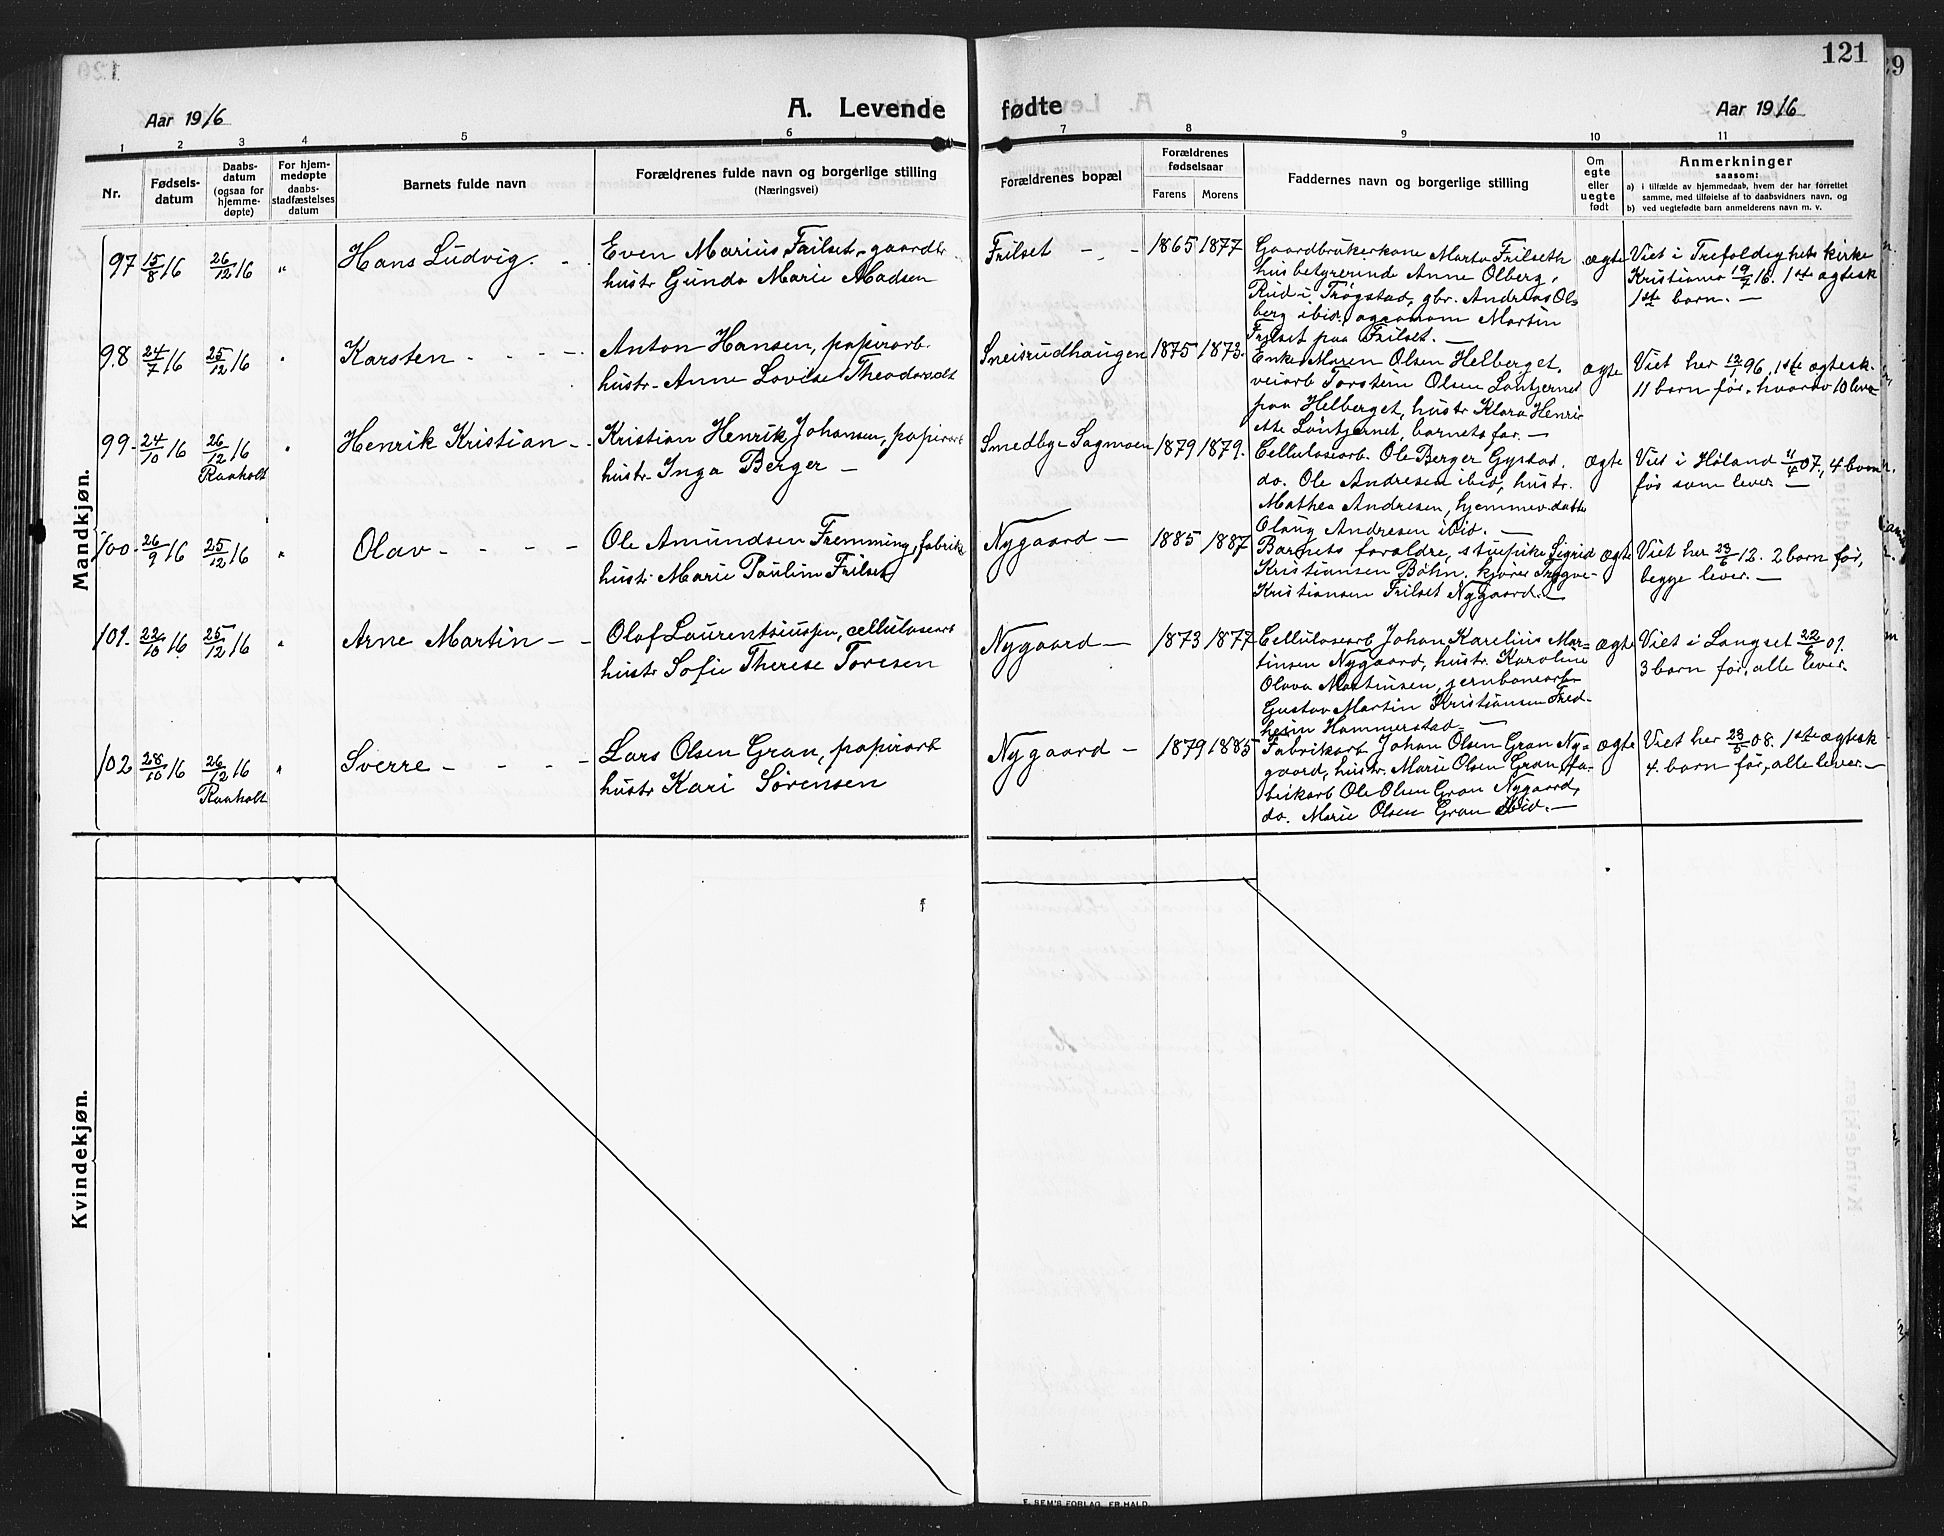 121
Aar 1916
A. Levende fødte
Aar 1916
1 2 3 4 5 6 7 8 9 10 11
Nr.
Fødsels-
datum
Daabs-
datum
(ogsaa for
hjemme-
døpte)
For hjem-
medøpte
daabs-
stadfæstelses
datum
Barnets fulde navn
Forældrenes fulde navn og borgerlige stilling
(Næringsvei)
Forældrenes bopæl
Forældrenes
fødselsaar
Farens Morens
Faddernes navn og borgerlige stilling
Om
egte
eller
uegte
født
Anmerkninger
saasom:
a) i tilfælde av hjemmedaab, hvem der har forrettet
samme, med tilføielse af to daabsvidners navn, og
b) ved uegtefødte barn anmelderens navn m. v.
Mandkjøn.
97 15/8 16 26/12 16 " Hans Ludvig. - -
Even Marius Frilset, gaardbr.
hustr Gunda Marie Madsen
Frilset - - 1865 1877
Gaardbrukerkone Marta Frilseth
husbestyrerinde Anne Olberg,
Rud i Trøgstad, gbr. Andreas Ol-
berg ibid., Martin
Frilset paa Frilset. -
ægte
Viet i Trefoldighets kirke
Kristiania 19/7 16. 1ste ægtesk
1ste barn. -
98 24/7 16 25/12 16 " Karsten - - - -
Anton Hansen, papirarb.
hustr. Anne Lovise Theodorsdt
Sneisrudhaugen 1875 1873.
Enke Maren Olsen Helberget,
veiarb Torstein Olsen Løntjernet
paa Helberget, hustr Klara Henri
ette Løntjernet, barnets far. -
ægte
Viet her 12/1 96. 1ste ægtesk.
11 barn før, hvorav 10 leve
99 - 24/10 16 26/12 16 " Henrik Kristian - -
Raaholt
Kristian Henrik Johansen, papirarb
hustr. Inga Berger -
Smedbye Sagmoen 1879 1879.
Cellulosearb. Ole Berger Gystad,
do. Ole Andresen ibid, hustr.
Mathea Andresen, hjemmev. datter
Olaug Andresen ibid. -
ægte
Viet i Høland 11/4 07, 4 barn
før som lever. -
100 - 26/9 16 25/12 16 " Olav - - - -
Ole Amundsen Fremming, fabrika
hustr. Marie Pauline Frilset
Nygaard - 1885 1887
Barnets foreldre, stuepike Sigrid
Kristiansen Bøhn, kjører Trygve
Kristiansen Frilset Nygaard. -
ægte
Viet her 23/6 12. 2 barn før,
begge lever. -
101. 22/10 16 25/12 16 " Arne Martin - -
Olaf Laurentsiussen, cellulosearb
hustr Sofie Therese Toresen
Nygaard - 1873 1877
Cellulosearb Johan Karelius Mar-
tinsen Nygaard, hustr. Karoline
Olava Martinsen, jernbanearb
Gustav Martin Kristiansen Fred-
heim Hammerstad -
ægte
Viet i Langset 22/6 01.
3 barn før, alle lever.
102 28/10 16 26/12 16 " Sverre - - - -
Raaholt
Lars Olsen Gran, papirarb
hustr Kari Sørensen
Nygaard - 1879 1885
Fabrikarb Johan Olsen Gran Ny-
gaard, hustr. Marie Olsen Gran, fa-
brikarb Ole Olsen Gran Nygaard,
do. Marie Olsen Gran ibid. -
ægte
Viet her 23/5 08. 1ste ægtesk
4 barn før, alle lever. -
Kvindekjøn.
E. SEM'S FORLAG, FR.HALD